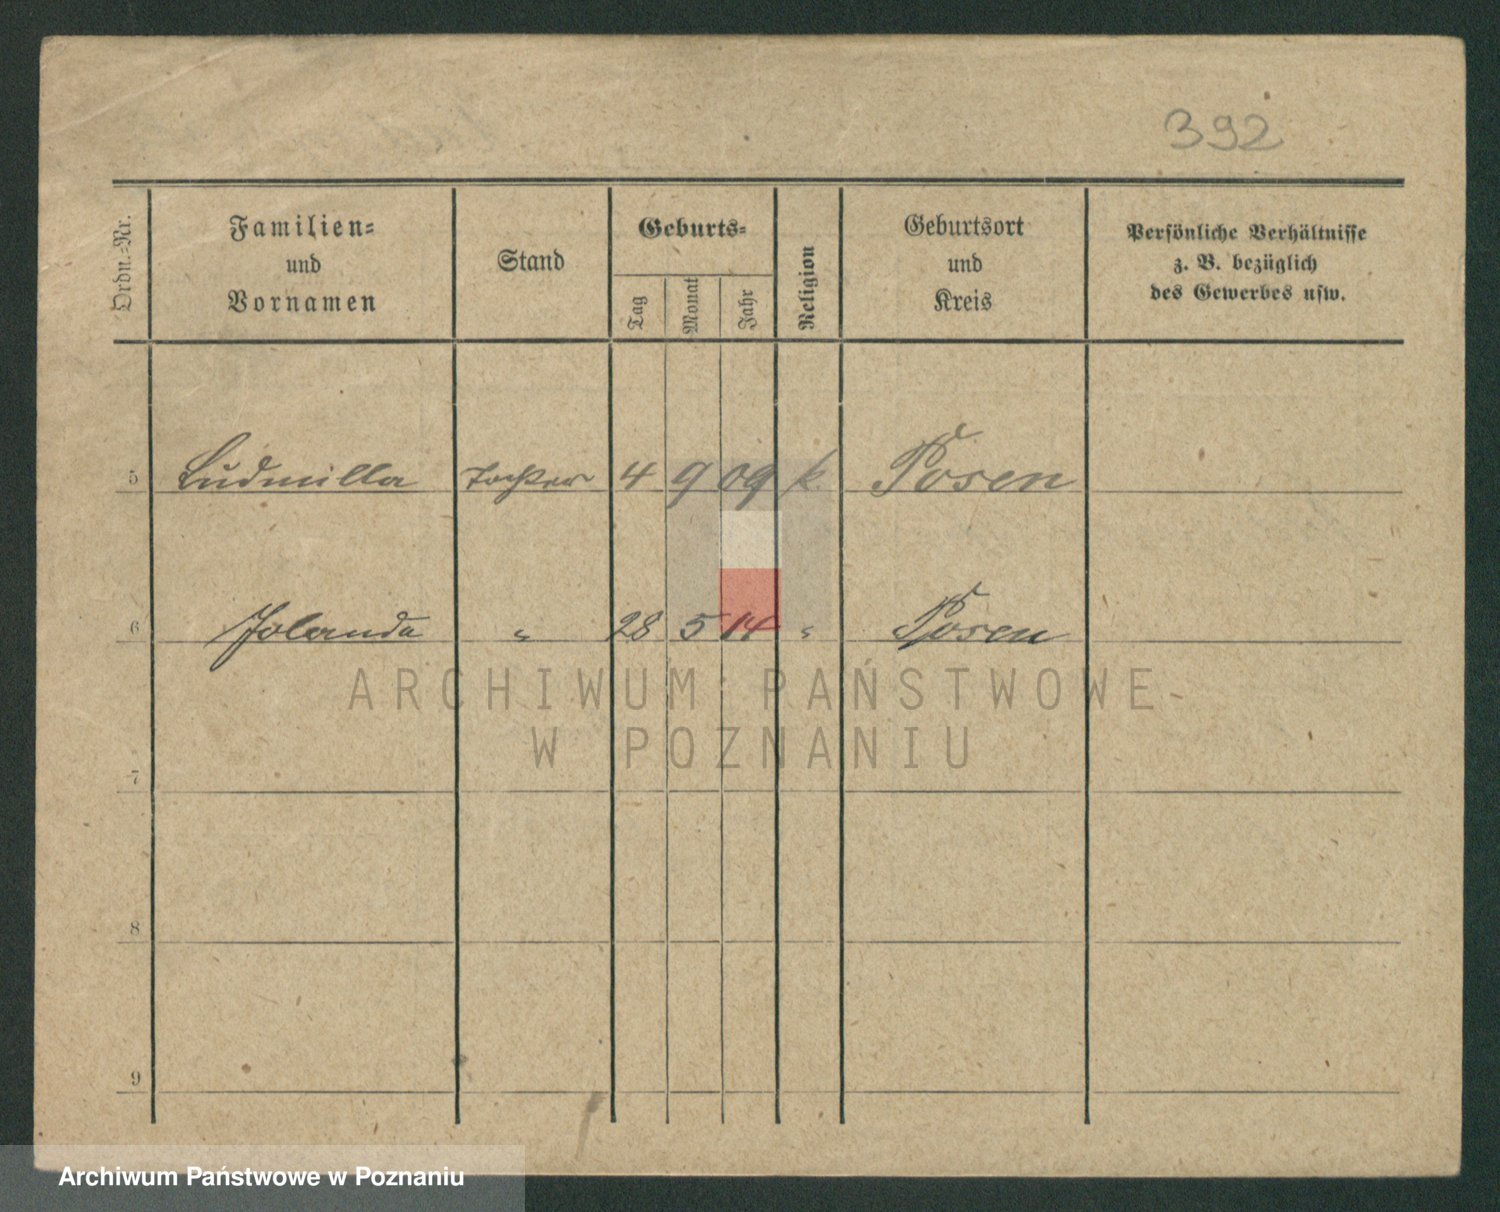 392
Ordn.-Nr.
Familien-
und
Vornamen
Stand
Geburts-
Tag
Monat
Jahr
Religion
Geburtsort
und
Kreis
Persönliche Verhältnisse
z. B. bezüglich
des Gewerbes usw.
5 Ludmilla Tochter 4 9 09 k. Posen
6 Jolanda " 28 5 14 " Posen
ARCHIWUM PAŃSTWOWE
W POZNANIU
7
8
9
Archiwum Państwowe w Poznaniu